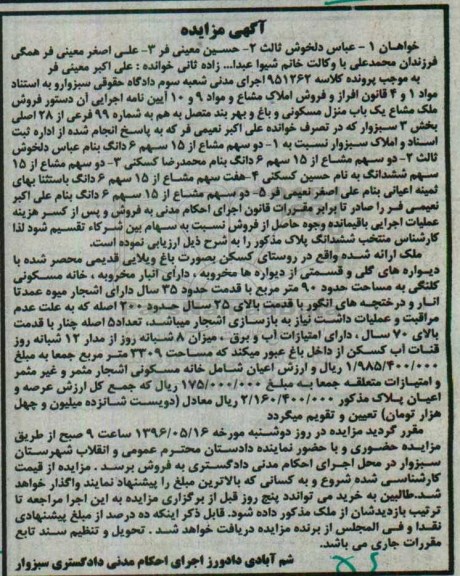 آگهی مزایده
خواهان ۱ - عباس دلخوش ثالث ۲- حسین معینی فر ۳- علی اصغر معینی فر همگی
فرزندان محمدعلی با وکالت خانم شیوا عبدا... زاده ثانی خوانده : علی اکبر معینی فر
به موجب پرونده کلاسه ۹۵۱۲۶۲ اجرای مدنی شعبه سوم دادگاه حقوقی سبزوارو به استناد
مواد ۱ و ۴ قانون افراز و فروش املاک مشاع و مواد ۹ و ۱۰ آیین نامه اجرایی آن دستور فروش
ملک مشاع یک باب منزل مسکونی و باغ و بهر بند متصل به هم به شماره ۹۹ فرعی از ۲۸ اصلی
بخش ۳ سبزوار که در تصرف خوانده علی اکبر نعیمی فر که به پاسخ انجام شده از اداره ثبت
اسناد و املاک سبزوار نسبت به ۱- دو سهم مشاع از ۱۵ سهم ۶ دانگ بنام عباس دلخوش
ثالث ۲- دو سهم مشاع از ۱۵ سهم ۶ دانگ بنام محمدرضا کسکنی ۳- دو سهم مشاع از ۱۵
سهم ششدانگ به نام حسین کسکنی ۴-هفت سهم مشاع از ۱۵ سهم ۶ دانگ باستثنا بهای
ثمینه اعیانی بنام علی اصغر نعیمی فر ۵- دو سهم مشاع از ۱۵ سهم ۶ دانگ بنام علی اکبر
نعیمی فر را صادر تا برابر مقررات قانون اجرای احکام مدنی به فروش و پس از کسر هزینه
عملیات اجرایی باقیمانده وجوه حاصل از فروش نسبت به سهام بین شرکاء تقسیم شود لذا
کارشناس منتخب ششدانگ پلاک مذکور را به شرح ذیل ارزیابی نموده است.
ملک ارائه شده واقع در روستای کسکن بصورت باغ ویلایی قدیمی محصر شده با
دیواره های گلی و قسمتی از دیواره ها مخروبه ، دارای انبار مخروبه ، خانه مسکونی
کلنگی به مساحت حدود ۹۰ متر مربع با قدمت حدود ۳۵ سال دارای اشجار میوه عمدتا
انار و درختچه های انگور با قدمت بالای ۲۵ سال حدود ۲۰۰ اصله که به علت عدم
مراقبت و عملیات داشت نیاز به بازسازی اشجار میباشد، تعداد۵ اصله چنار با قدمت
بالای ۷۰ سال ، دارای امتیازات آب و برق . میزان ۸ شبانه روز از مدار ۱۲ شبانه روز
قنات آب کسکن از داخل باغ عبور میکند که مساحت ۳۳۰۹ متر مربع جمعا به مبلغ
۱/۹۸۵/۴۰۰/۰۰۰ ریال و ارزش اعیان شامل خانه مسکونی اشجار مثمر و غیر مثمر
و امتیازات متعلقه جمعا به مبلغ ۱۷۵/۰۰۰/۰۰۰ ریال که جمع کل ارزش عرصه و
اعیان پلاک مذکور ۲/۱۶۰/۴۰۰/۰۰۰ ریال معادل (دویست شانزده میلیون و چهل
هزار تومان) تعیین و تقویم میگردد
مقرر گردید مزایده در روز دوشنبه مورخه ۱۳۹۶/۰۵/۱۶ ساعت ۹ صبح از طریق
مزایده حضوری و با حضور نماینده دادستان محترم عمومی و انقلاب شهرستان
سبزوار در محل اجرای احکام مدنی دادگستری به فروش برسد . مزایده از قیمت
کارشناسی شده شروع و به کسانی که بالاترین مبلغ را پیشنهاد نمایند واگذار خواهد
شد.طالبین به خرید می توانند پنج روز قبل از برگزاری مزایده به این اجرا مراجعه تا
ترتیب بازدیدشان از ملک مذکور داده شود. قابل ذکر اینکه ده درصد از مبلغ پیشنهادی
نقدا و فی المجلس از برنده مزایده دریافت خواهد شد . تحویل و تنظیم سند تابع
مقررات جاری می باشد.
شم آبادی دادورز اجرای احکام مدنی دادگستری سبزوار